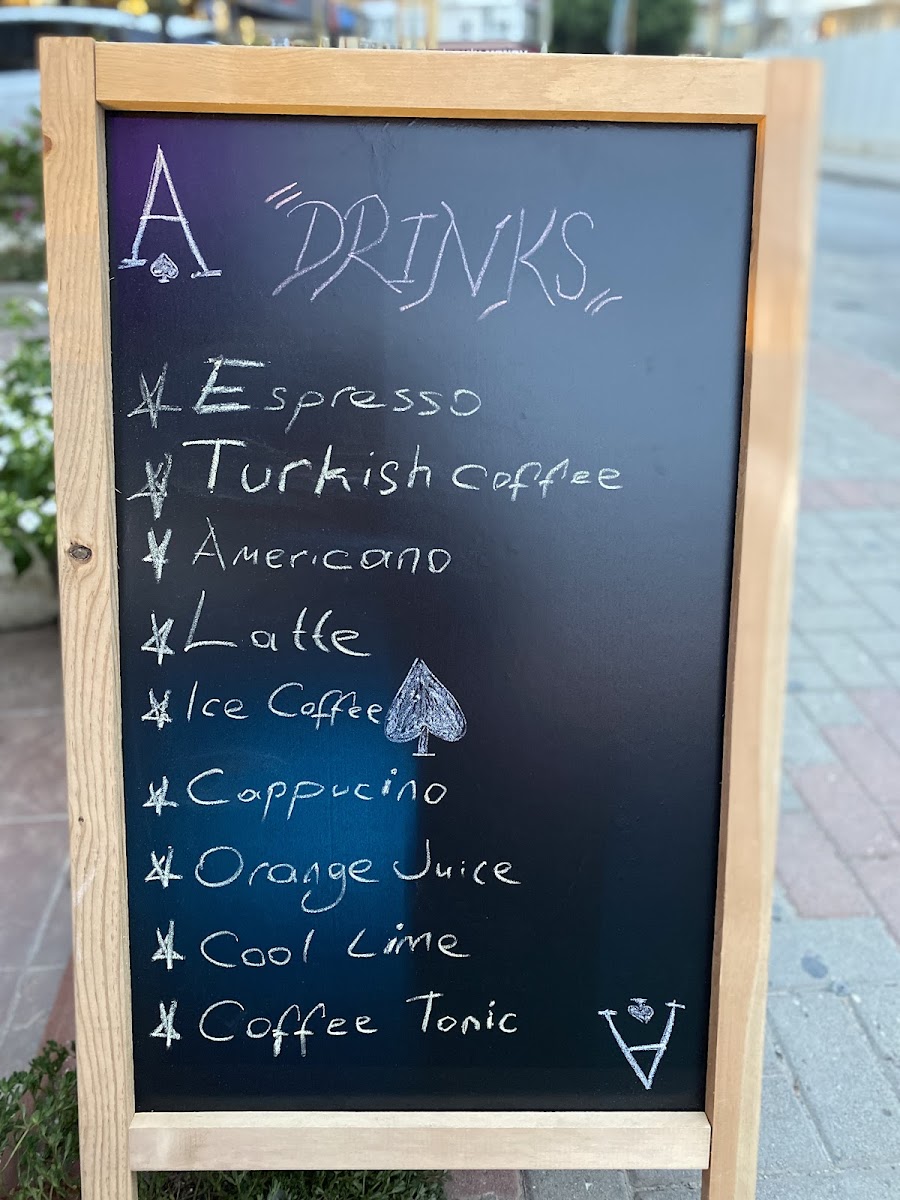 A
"DRINKS"
Espresso
Turkish coffee
Americano
Latte
Ice Coffee
Cappucino
Orange Juice
Cool Lime
Coffee Tonic
A